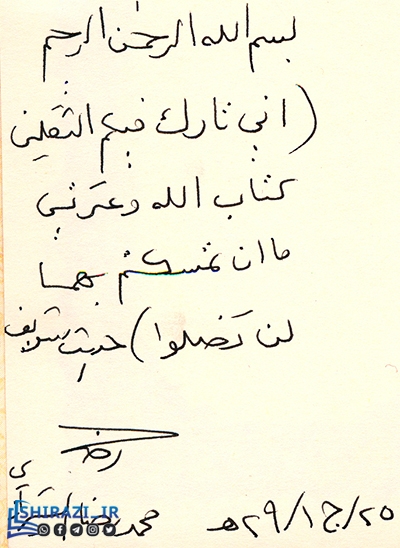 بسم الله الرحمن الرحيم
(اني تارك فيكم الثقلين
كتاب الله وعترتي
ما ان تمسكتم بهما
لن تضلوا) حديث شريف
رضا
محمد رضا الشيرازي
٢٥/ج١/٢٩هـ
SHIRAZI_IR